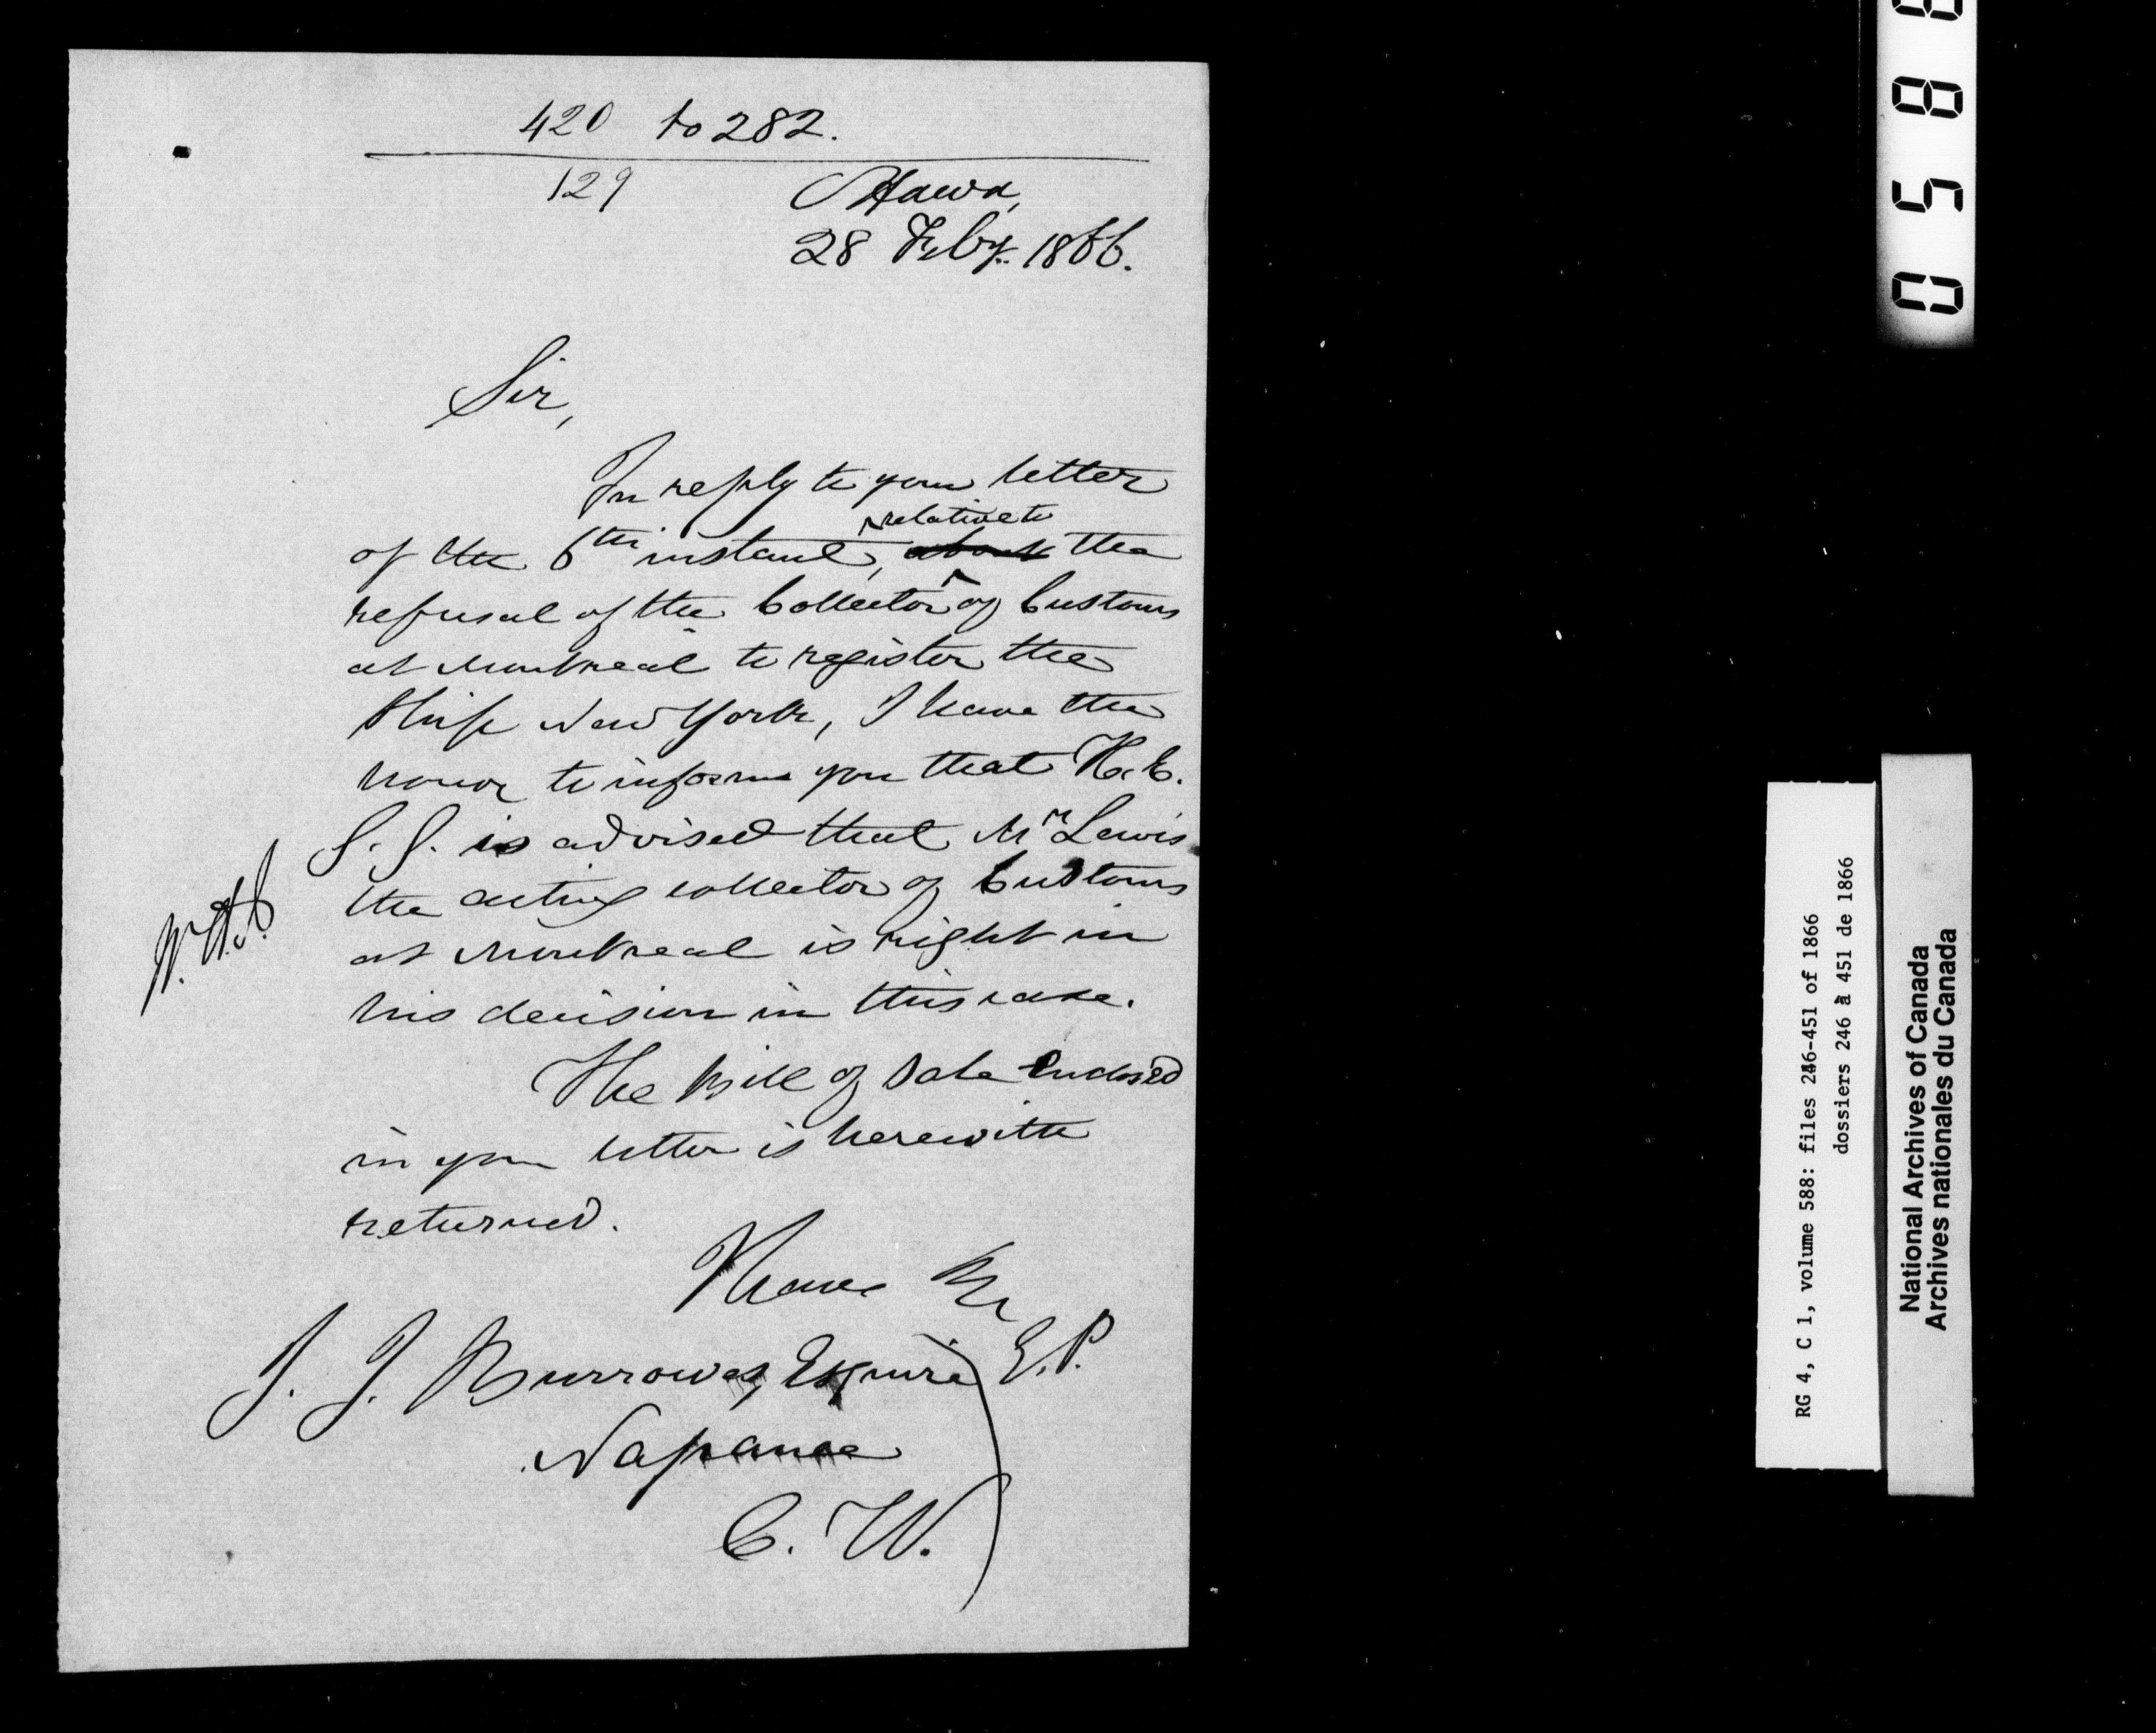 420 to 282.
129
Ottawa,
28 Feby. 1866.
Sir,
In reply to your letter
of the 6th instant, about relative to the
refusal of the Collector of Customs
at Montreal to register the
Ship New York, I have the
honor to inform you that H. E.
is advised that Mr Lewis
the acting collector of Customs
at Montreal is right in
his decision in this case.
The bill of sale enclosed
in your letter is herewith
returned.
Have
J. J. Burrowes, Esquire
Napanee
C. W.
0588
RG 4, C 1, volume 588: files 246-451 of 1866
dossiers 246 à 451 de 1866
National Archives of Canada
Archives nationales du Canada